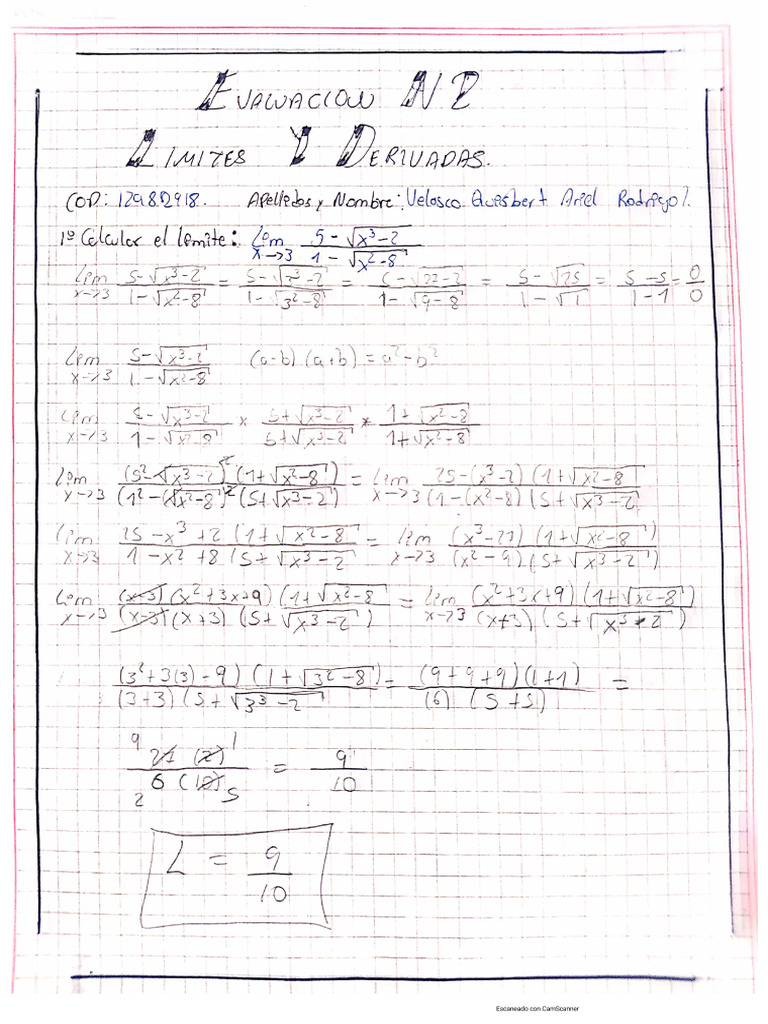 EVALUACION N2
LIMITES Y DERIVADAS.
COD: 129812918. Apellidos y Nombre: Velasco Quesbert Ariel Rodrigo.
1º Calcular el lemite: lim x→3 (5-√(x³-2))/(1-√(x²-8))
lim x→3 (5-√(x³-2))/(1-√(x²-8)) = (5-√(3³-2))/(1-√(3²-8)) = (5-√(27-2))/(1-√(9-8)) = (5-√25)/(1-√1) = (5-5)/(1-1) = 0/0
lim x→3 (5-√(x³-2))/(1-√(x²-8)) (a-b)(a+b)=a²-b²
lim x→3 (5-√(x³-2))/(1-√(x²-8)) * (5+√(x³-2))/(5+√(x³-2)) * (1+√(x²-8))/(1+√(x²-8))
lim x→3 (5²-√(x³-2)²)(1+√(x²-8))/(1²-(√(x²-8))²(5+√(x³-2)) = lim x→3 25-(x³-2)(1+√(x²-8)/(1-(x²-8)(5+√(x³-2)
lim x→3 25-x³+2(1+√(x²-8)/1-x²+8(5+√(x³-2) = lim x→3 (x³-27)(1+√(x²-8)/(x²-9)(5+√(x³-2))
lim x→3 (x-3)(x²+3x+9)(1+√(x²-8)/(x-3)(x+3)(5+√(x³-2)) = lim x→3 (x²+3x+9)(1+√(x²-8))/(x+3)(5+√(x³-2))
(3²+3(3)-9)(1+√(3²-8))/(3+3)(5+√(3³-2) = (9+9+9)(1+1)/(6)(5+5) =
9 27 (2) 1 / 2 6 (10) 5 = 9/10
L = 9/10
Escaneado con CamScanner